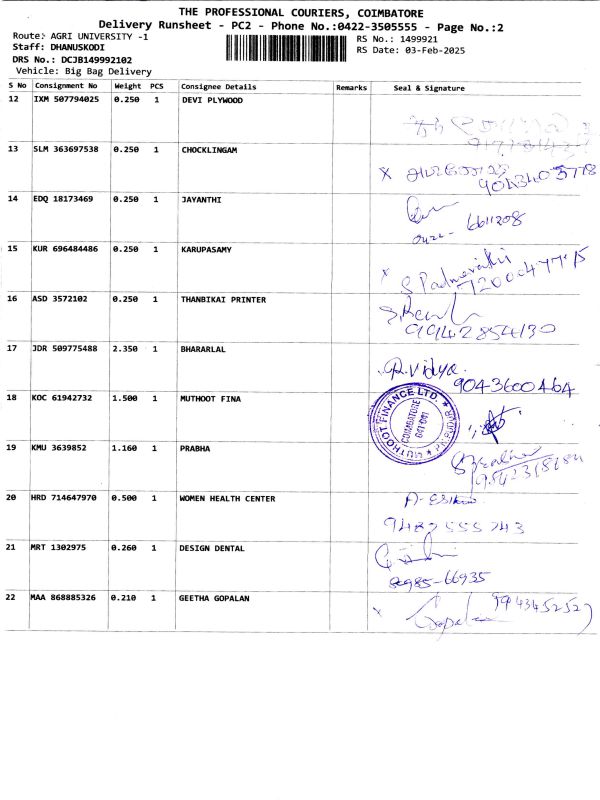 THE PROFESSIONAL COURIERS, COIMBATORE
Delivery Runsheet - PC2 - Phone No.:0422-3505555 - Page No.:2
Route: AGRI UNIVERSITY -1
RS No.: 1499921
Staff: DHANUSKODI
RS Date: 03-Feb-2025
DRS No.: DCJB149992102
Vehicle: Big Bag Delivery
S No Consignment No Weight PCS Consignee Details Remarks Seal & Signature
12 IXM 507794025 0.250 1 DEVI PLYWOOD
13 SLM 363697538 0.250 1 CHOCKLINGAM
9043403778
14 EDQ 18173469 0.250 1 JAYANTHI
0422- 6611208
15 KUR 696484486 0.250 1 KARUPASAMY
S Padmavathi
16 ASD 3572102 0.250 1 THANBIKAI PRINTER
9942854130
17 JDR 509775488 2.350 1 BHARARLAL
R.Vidya
9043600464
18 KOC 61942732 1.500 1 MUTHOOT FINA
MUTHOOT FINANCE LTD.
COIMBATORE
641 041
19 KMU 3639852 1.160 1 PRABHA
20 HRD 714647970 0.500 1 WOMEN HEALTH CENTER
9487555743
21 MRT 1302975 0.260 1 DESIGN DENTAL
8985-66935
22 MAA 868885326 0.210 1 GEETHA GOPALAN
9943452527